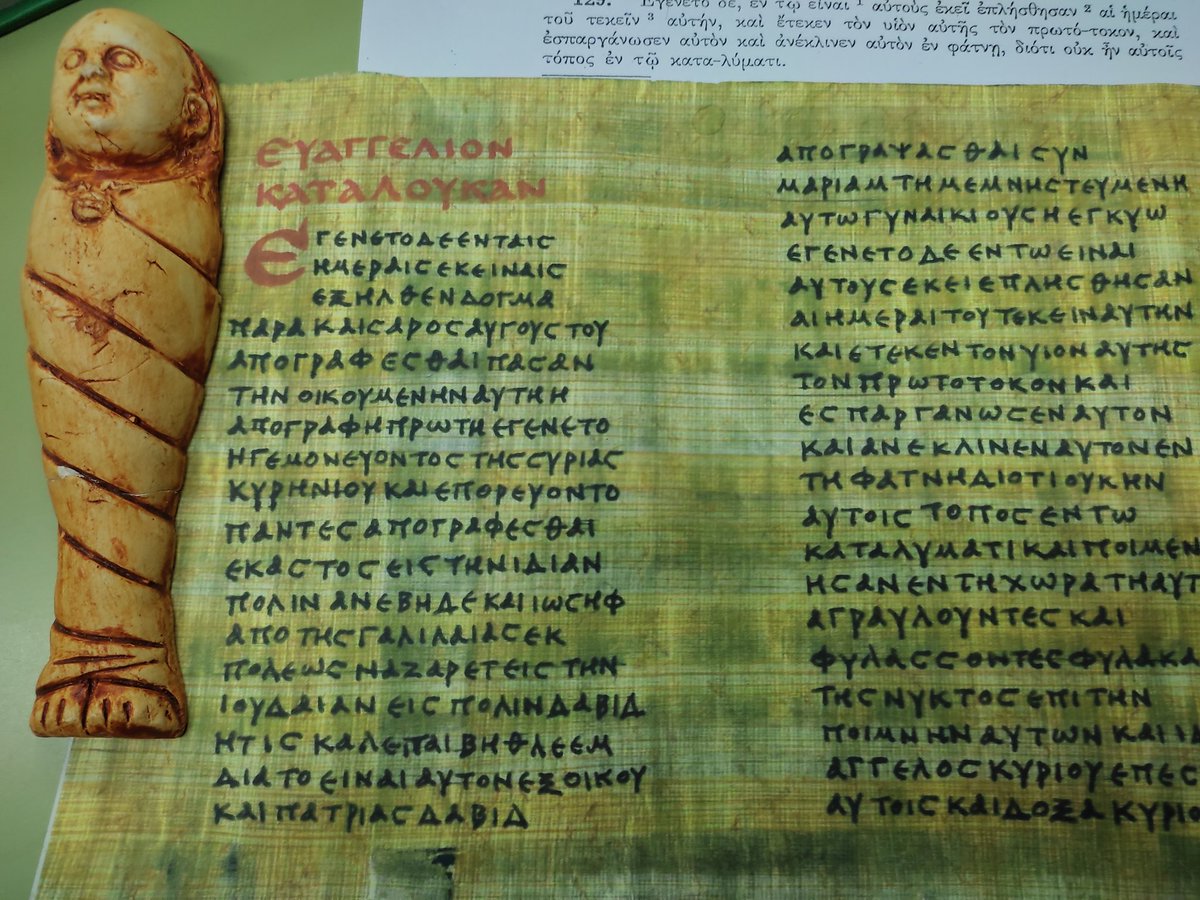 Ἐγένετο δέ, ἐν τῷ εἶναι ¹ αὐτοὺς ἐκεῖ ἐπλήσθησαν ² αἱ ἡμέραι
τοῦ τεκεῖν ³ αὐτήν, καὶ ἔτεκεν τὸν υἱὸν αὐτῆς τὸν πρωτό-τοκον, καὶ
ἐσπαργάνωσεν αὐτὸν καὶ ἀνέκλινεν αὐτὸν ἐν φάτνῃ, διότι οὐκ ἦν αὐτοῖς
τόπος ἐν τῷ κατα-λύματι.
ΕΥΑΓΓΕΛΙΟΝ
ΚΑΤΑΛΟΥΚΑΝ
ΕΓΕΝΕΤΟΔΕΕΝΤΑΙϹ
ΗΜΕΡΑΙϹΕΚΕΙΝΑΙϹ
ΕΞΗΛΘΕΝΔΟΓΜΑ
ΠΑΡΑΚΑΙϹΑΡΟϹΑΥΓΟΥϹΤΟΥ
ΑΠΟΓΡΑΦΕϹΘΑΙΠΑϹΑΝ
ΤΗΝΟΙΚΟΥΜΕΝΗΝΑΥΤΗΗ
ΑΠΟΓΡΑΦΗΠΡΩΤΗΕΓΕΝΕΤΟ
ΗΓΕΜΟΝΕΥΟΝΤΟϹΤΗϹϹΥΡΙΑϹ
ΚΥΡΗΝΙΟΥΚΑΙΕΠΟΡΕΥΟΝΤΟ
ΠΑΝΤΕϹΑΠΟΓΡΑΦΕϹΘΑΙ
ΕΚΑϹΤΟϹΕΙϹΤΗΝΙΔΙΑΝ
ΠΟΛΙΝΑΝΕΒΗΔΕΚΑΙΙΩϹΗΦ
ΑΠΟΤΗϹΓΑΛΙΛΑΙΑϹΕΚ
ΠΟΛΕΩϹΝΑΖΑΡΕΤΕΙϹΤΗΝ
ΙΟΥΔΑΙΑΝΕΙϹΠΟΛΙΝΔΑΒΙΔ
ΗΤΙϹΚΑΛΕΙΤΑΙΒΗΘΛΕΕΜ
ΔΙΑΤΟΕΙΝΑΙΑΥΤΟΝΕΞΟΙΚΟΥ
ΚΑΙΠΑΤΡΙΑϹΔΑΒΙΔ
ΑΠΟΓΡΑΨΑϹΘΑΙϹΥΝ
ΜΑΡΙΑΜΤΗΜΕΜΝΗϹΤΕΥΜΕΝΗ
ΑΥΤΩΓΥΝΑΙΚΙΟΥϹΗΕΓΚΥΩ
ΕΓΕΝΕΤΟΔΕΕΝΤΩΕΙΝΑΙ
ΑΥΤΟΥϹΕΚΕΙΕΠΛΗϹΘΗϹΑΝ
ΑΙΗΜΕΡΑΙΤΟΥΤΕΚΕΙΝΑΥΤΗΝ
ΚΑΙΕΤΕΚΕΝΤΟΝΥΙΟΝΑΥΤΗϹ
ΤΟΝΠΡΩΤΟΤΟΚΟΝΚΑΙ
ΕϹΠΑΡΓΑΝΩϹΕΝΑΥΤΟΝ
ΚΑΙΑΝΕΚΛΙΝΕΝΑΥΤΟΝΕΝ
ΤΗΦΑΤΝΗΔΙΟΤΙΟΥΚΗΝ
ΑΥΤΟΙϹΤΟΠΟϹΕΝΤΩ
ΚΑΤΑΛΥΜΑΤΙΚΑΙΠΟΙΜΕΝ
ΗϹΑΝΕΝΤΗΧΩΡΑΤΗΑΥΤ
ΑΓΡΑΥΛΟΥΝΤΕϹΚΑΙ
ΦΥΛΑϹϹΟΝΤΕϹΦΥΛΑΚΑ
ΤΗϹΝΥΚΤΟϹΕΠΙΤΗΝ
ΠΟΙΜΝΗΝΑΥΤΩΝΚΑΙ
ΑΓΓΕΛΟϹΚΥΡΙΟΥΕΠΕϹ
ΑΥΤΟΙϹΚΑΙΔΟΞΑΚΥΡΙΟ